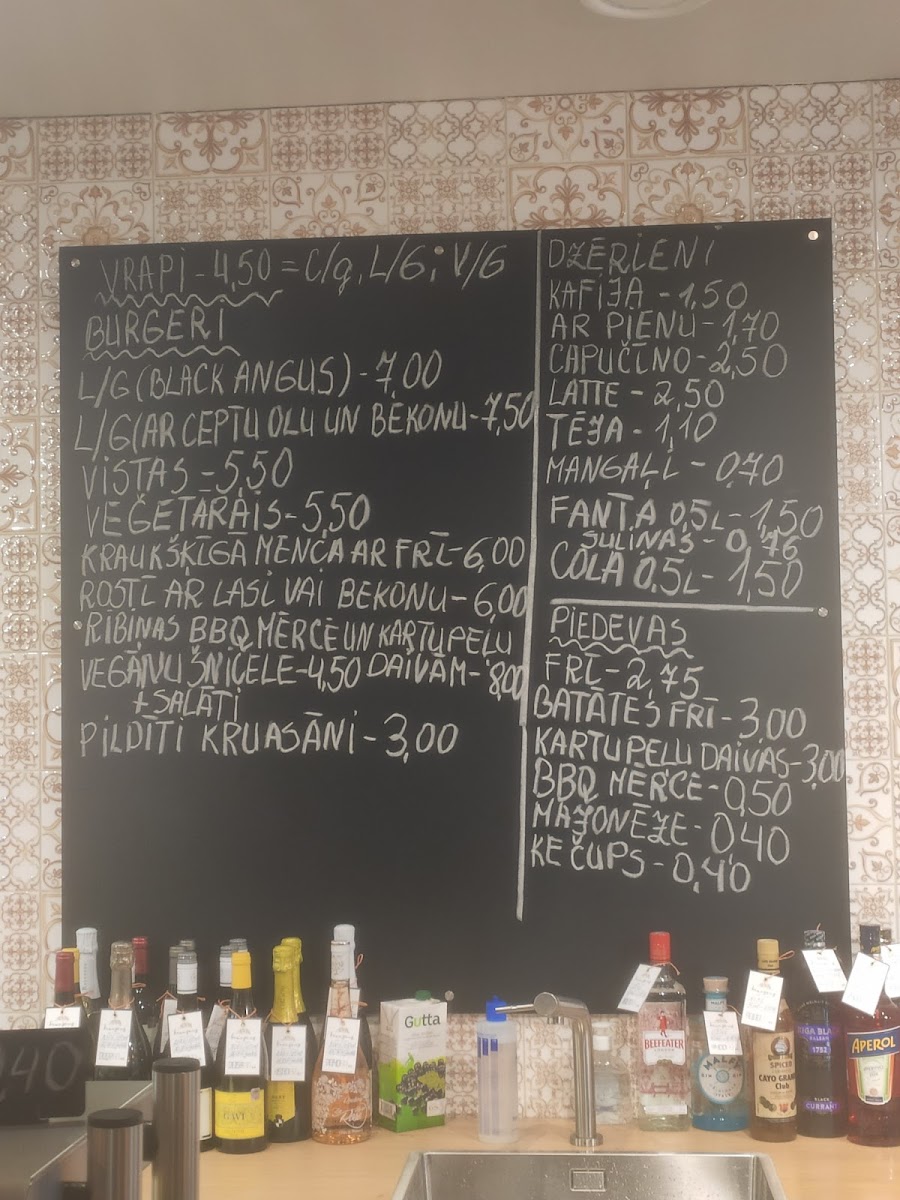 VRAPI - 4,50 = C/g, L/G, V/G
BURGERI
L/G (BLACK ANGUS) - 7,00
L/G (AR CEPTU OLU UN BEKONU - 7,50
VISTAS - 5,50
VEĢETĀRAIS - 5,50
KRAUKŠĶĪGĀ MENCA AR FRĪ - 6,00
ROSTĪ AR LASI VAI BEKONU - 6,00
RIBIŅAS BBQ MĒRCĒ UN KARTUPEĻU
VEGĀNU ŠNICELE - 4,50 DAIVĀM - 8,00
+ SALĀTI
PILDĪTI KRUASĀNI - 3,00
DZĒRIENI
KAFIJA - 1,50
AR PIENU - 1,70
CAPUČĪNO - 2,50
LATTE - 2,50
TĒJA - 1,10
MANGAĻI - 0,70
FANTA 0,5L - 1,50
SULIŅAS - 0,76
COLA 0,5L - 1,50
PIEDEVAS
FRĪ - 2,75
BATĀTES FRĪ - 3,00
KARTUPEĻU DAIVAS - 3,00
BBQ MĒRCE - 0,50
MAJONĒZE - 0,40
KEČUPS - 0,40
Gutta
BEEFEATER
MALFY
GIN
SPICED
CAYO GRANDE
Club
RIGA BLACK
BALSAM
1752
BLACK
CURRANT
APEROL
GAVI
40